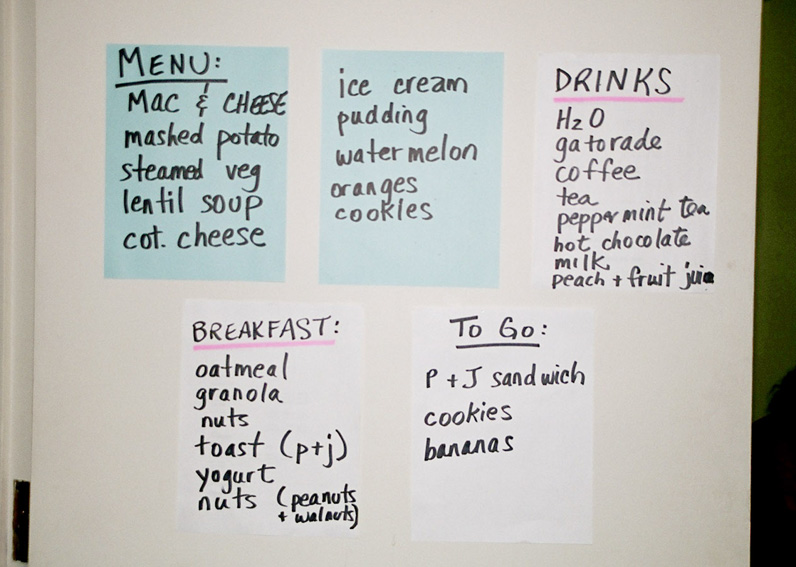 MENU:
MAC & CHEESE
mashed potato
steamed veg
lentil soup
cot. cheese
ice cream
pudding
watermelon
oranges
cookies
DRINKS
H2O
gatorade
coffee
tea
peppermint tea
hot chocolate
milk
peach + fruit juice
BREAKFAST:
oatmeal
granola
nuts
toast (p+j)
yogurt
nuts (peanuts
+ walnuts)
To Go:
P + J sandwich
cookies
bananas